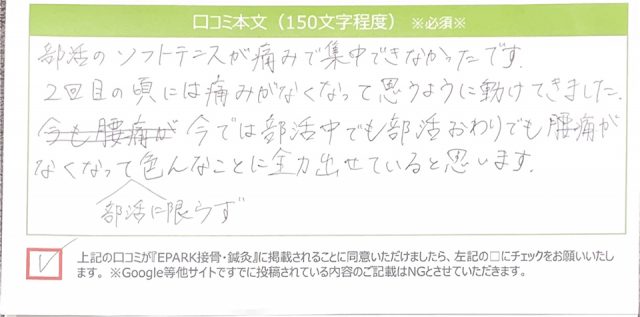 口コミ本文（150文字程度）※必須※
部活のソフトテニスが痛みで集中できなかったです.
2回目の頃には痛みがなくなって思うように動けてきました.
今も腰痛が 今では部活中でも部活おわりでも腰痛が
なくなって色んなことに全力出せていると思います.
部活に限らず
上記の口コミが『EPARK接骨・鍼灸』に掲載されることに同意いただけましたら、左記の□にチェックをお願いいたします。※Google等他サイトですでに投稿されている内容のご記載はNGとさせていただきます。